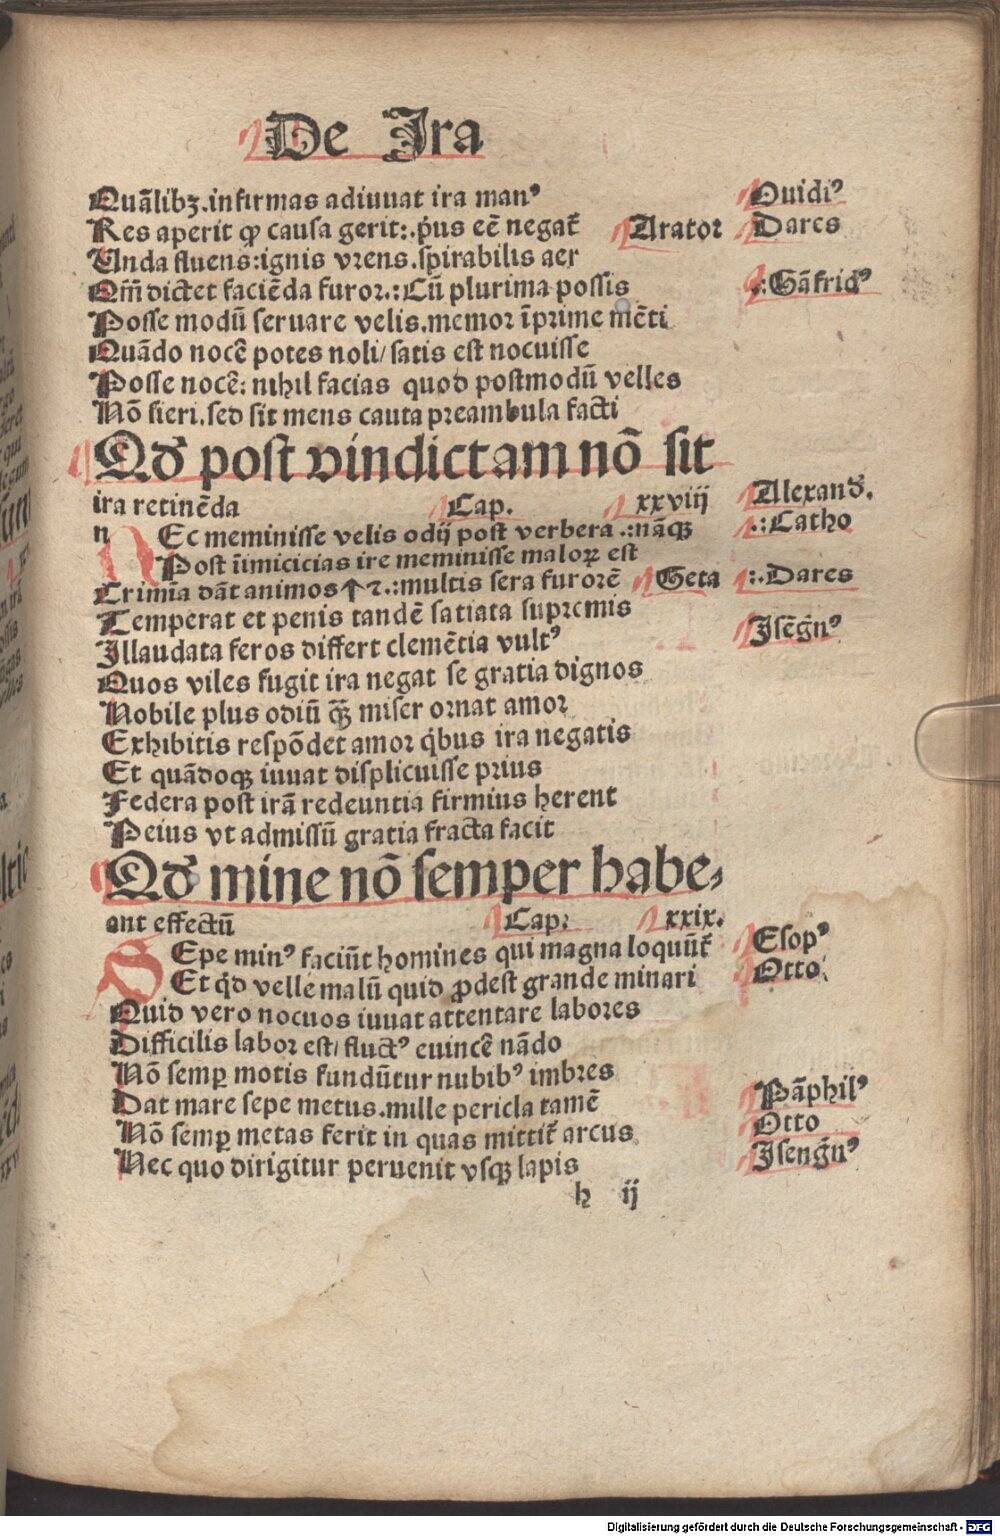 De Ira
Quālibꝫ.infirmas adiuuat ira manꝰ Ouidiꝰ
Res aperit ꝙ causa gerit:.p̄us eē negat̄ Arator Dares
Unda fluens:ignis vrens.spirabilis aer
Om̄ dictet faciēda furor.:Cū plurima possis .:Gāfridꝰ
Posse modū seruare velis.memor īprime mēti
Quādo nocē potes noli/satis est nocuisse
Posse nocē: nihil facias quod postmodū velles
Nō fieri.sed sit mens cauta preambula facti
Qd̄ post vindictam nō sit
ira retinēda Cap. xxviij Alexand̄.
n Ec meminisse velis odij post verbera .:nāqꝫ .:Catho
Post īimicicias ire meminisse maloꝝ est
Crimīa dāt animos↑⁊.:multis sera furorē Geta :.Dares
Temperat et penis tandē satiata supremis
Illaudata feros differt clemētia vultꝰ Isēgn̄ꝰ
Quos viles fugit ira negat se gratia dignos
Nobile plus odiū qꝫ̄ miser ornat amor
Exhibitis respōdet amor q̇bus ira negatis
Et quādoqꝫ iuuat displicuisse prius
Federa post irā redeuntia firmius herent
Peius vt admissū gratia fracta facit
Qd̄ mine nō semper habe⸗
ant effectū Cap: xxix.
S Epe minꝰ faciūt homines qui magna loquūt̄ Esopꝰ
Et qd̄ velle malū quid ꝓdest grande minari Otto:
Quid vero nocuos iuuat attentare labores
Difficilis labor est/fluctꝰ euincē nādo
Nō semꝑ motis fundūtur nubibꝰ imbres
Dat mare sepe metus.mille pericla tamē Pāphilꝰ
Nō semꝑ metas ferit in quas mittit̄ arcus Otto
Nec quo dirigitur peruenit vsqꝫ lapis Isengn̄ꝰ
h ij
Digitalisierung gefördert durch die Deutsche Forschungsgemeinschaft - DFG